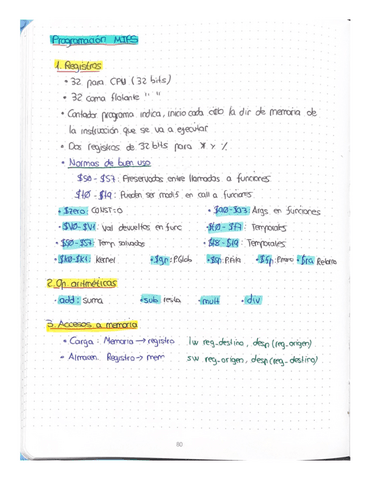 Programación MIPS
1. Registros
• 32 para CPU (32 bits)
• 32 coma flotante " "
• Contador programa indica, inicio cada ciclo la dir de memoria de
la instrucción que se va a ejecutar
• Dos registros de 32 bits para * y %
• Normas de buen uso
$S0 - $S7: Preservados entre llamadas a funciones
$t0 - $t9: Pueden ser modif en call a funciones
• $zero: CONST=0 • $a0 - $a3: Args en funciones
• $V0 - $V1: Val devueltos en func • $t0 - $t7: Temporales
• $S0 - $S7: Temp salvados • $t8 - $t9: Temporales
• $k0 - $k1: Kernel • $gp: PGlob • $sp: PPila • $fp: Pmarco $ra Retorno
2. Op. aritméticas
• add: suma • sub resta • mult • div
3. Accesos a memoria
• Carga: Memoria → registro lw reg_destino, desp (reg_origen)
• Almacen. Registro → mem sw reg_origen, desp (reg_destino)
80